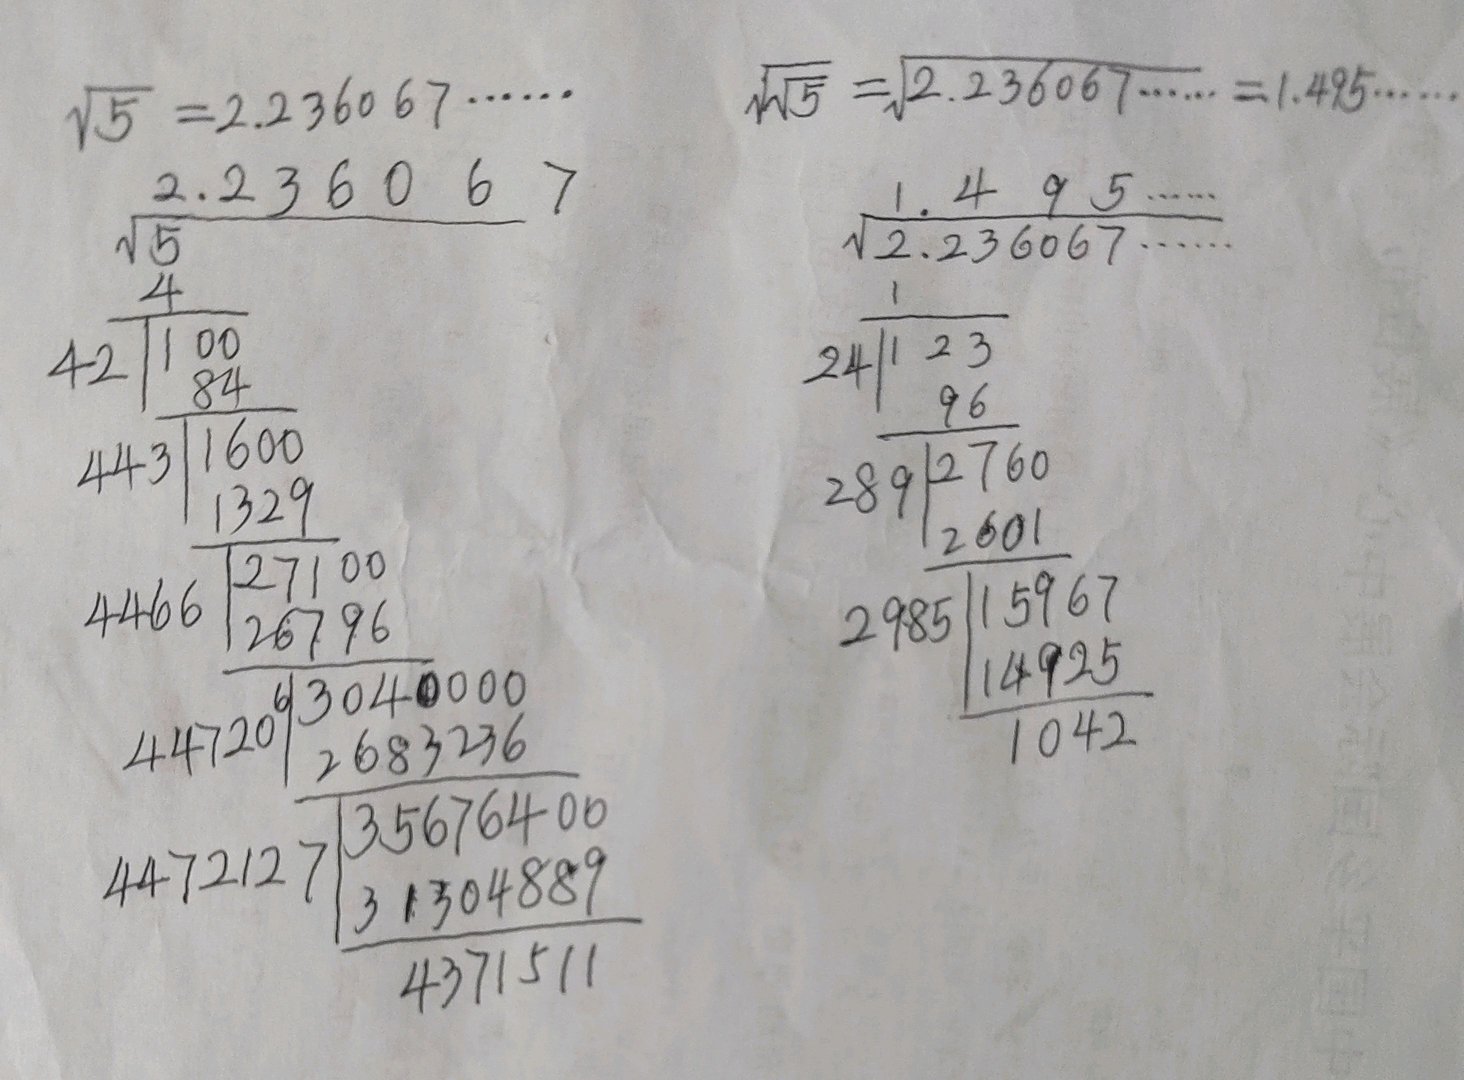 √5 = 2.236067······
2.236067
√5
4
42 100
84
443 1600
1329
4466 27100
26796
447206 3040000
2683236
4472127 35676400
31304889
4371511
√√5 = √2.236067······ = 1.495······
1.495······
√2.236067······
1
24 123
96
289 2760
2601
2985 15967
14925
1042